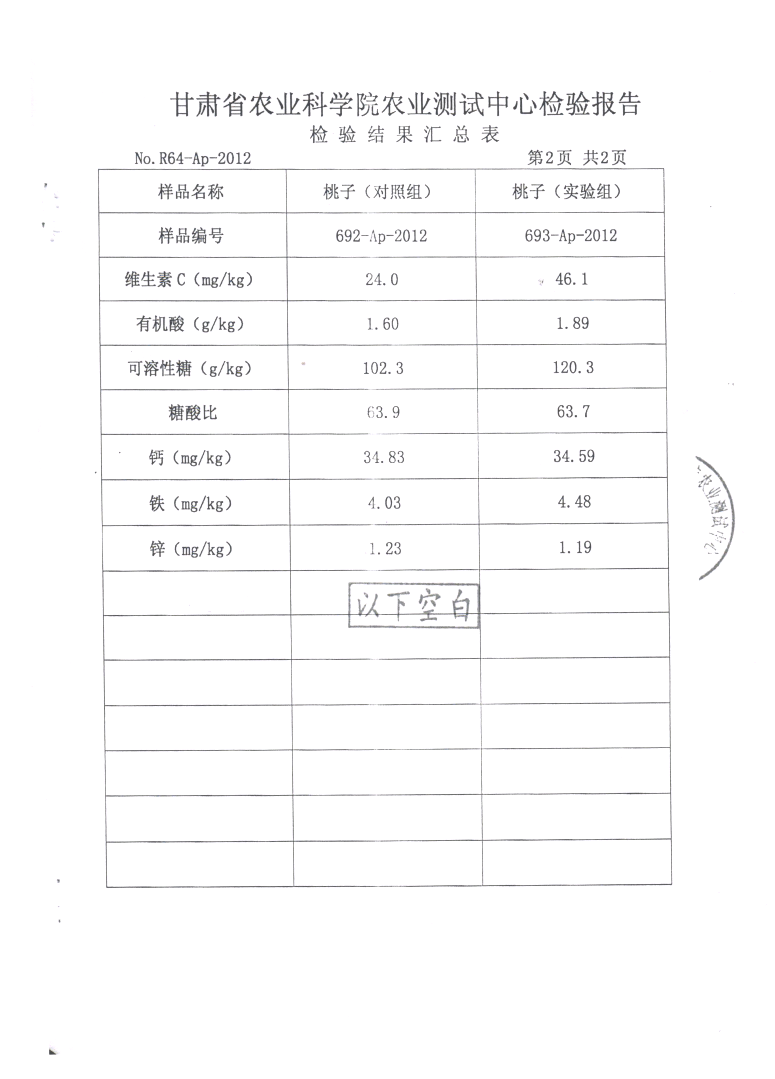 甘肃省农业科学院农业测试中心检验报告
检验结果汇总表
No.R64-Ap-2012 第2页 共2页
样品名称 桃子（对照组） 桃子（实验组）
样品编号 692-Ap-2012 693-Ap-2012
维生素C（mg/kg） 24.0 46.1
有机酸（g/kg） 1.60 1.89
可溶性糖（g/kg） 102.3 120.3
糖酸比 63.9 63.7
钙（mg/kg） 34.83 34.59
铁（mg/kg） 4.03 4.48
锌（mg/kg） 1.23 1.19
以下空白
农业测试中心